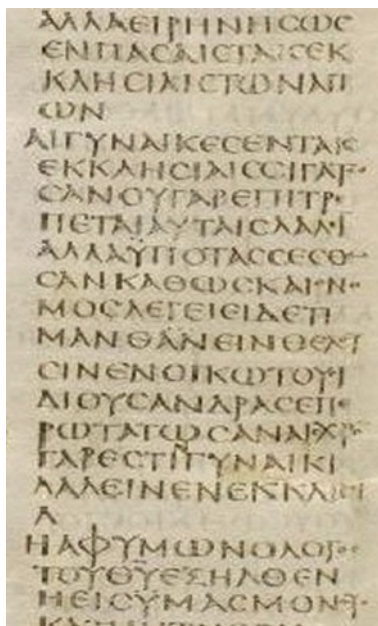 ΑΛΛΑΕΙΡΗΝΗCΩC
ΕΝΠΑCΑΙCΤΑΙCΕΚ
ΚΛΗCΙΑΙCΤΩΝΑΓΙ
ΩΝ
ΑΙΓΥΝΑΙΚΕCΕΝΤΑΙC
ΕΚΚΛΗCΙΑΙCCΙΓΑΤ
CΑΝΟΥΓΑΡΕΠΙΤΡΕ
ΠΕΤΑΙΑΥΤΑΙCΛΑΛΙ
ΑΛΛΑΫΠΟΤΑCCΕCΘΩ
CΑΝΚΑΘΩCΚΑΙΟΝΟ
ΜΟCΛΕΓΕΙΕΙΔΕΤΙ
ΜΑΝΘΑΝΕΙΝΘΕΛΟΥ
CΙΝΕΝΟΙΚΩΤΟΥCΙ
ΔΙΟΥCΑΝΔΡΑCΕΠΕ
ΡΩΤΑΤΩCΑΝΑΙCΧΡΟ
ΓΑΡΕCΤΙΝΓΥΝΑΙΚΙ
ΛΑΛΕΙΝΕΝΕΚΚΛΗCΙ
Α
ΗΑΦΥΜΩΝΟΛΟΓΟC
ΤΟΥΘ̅Υ̅ΕΞΗΛΘΕΝ
ΗΕΙCΥΜΑCΜΟΝΟΥ